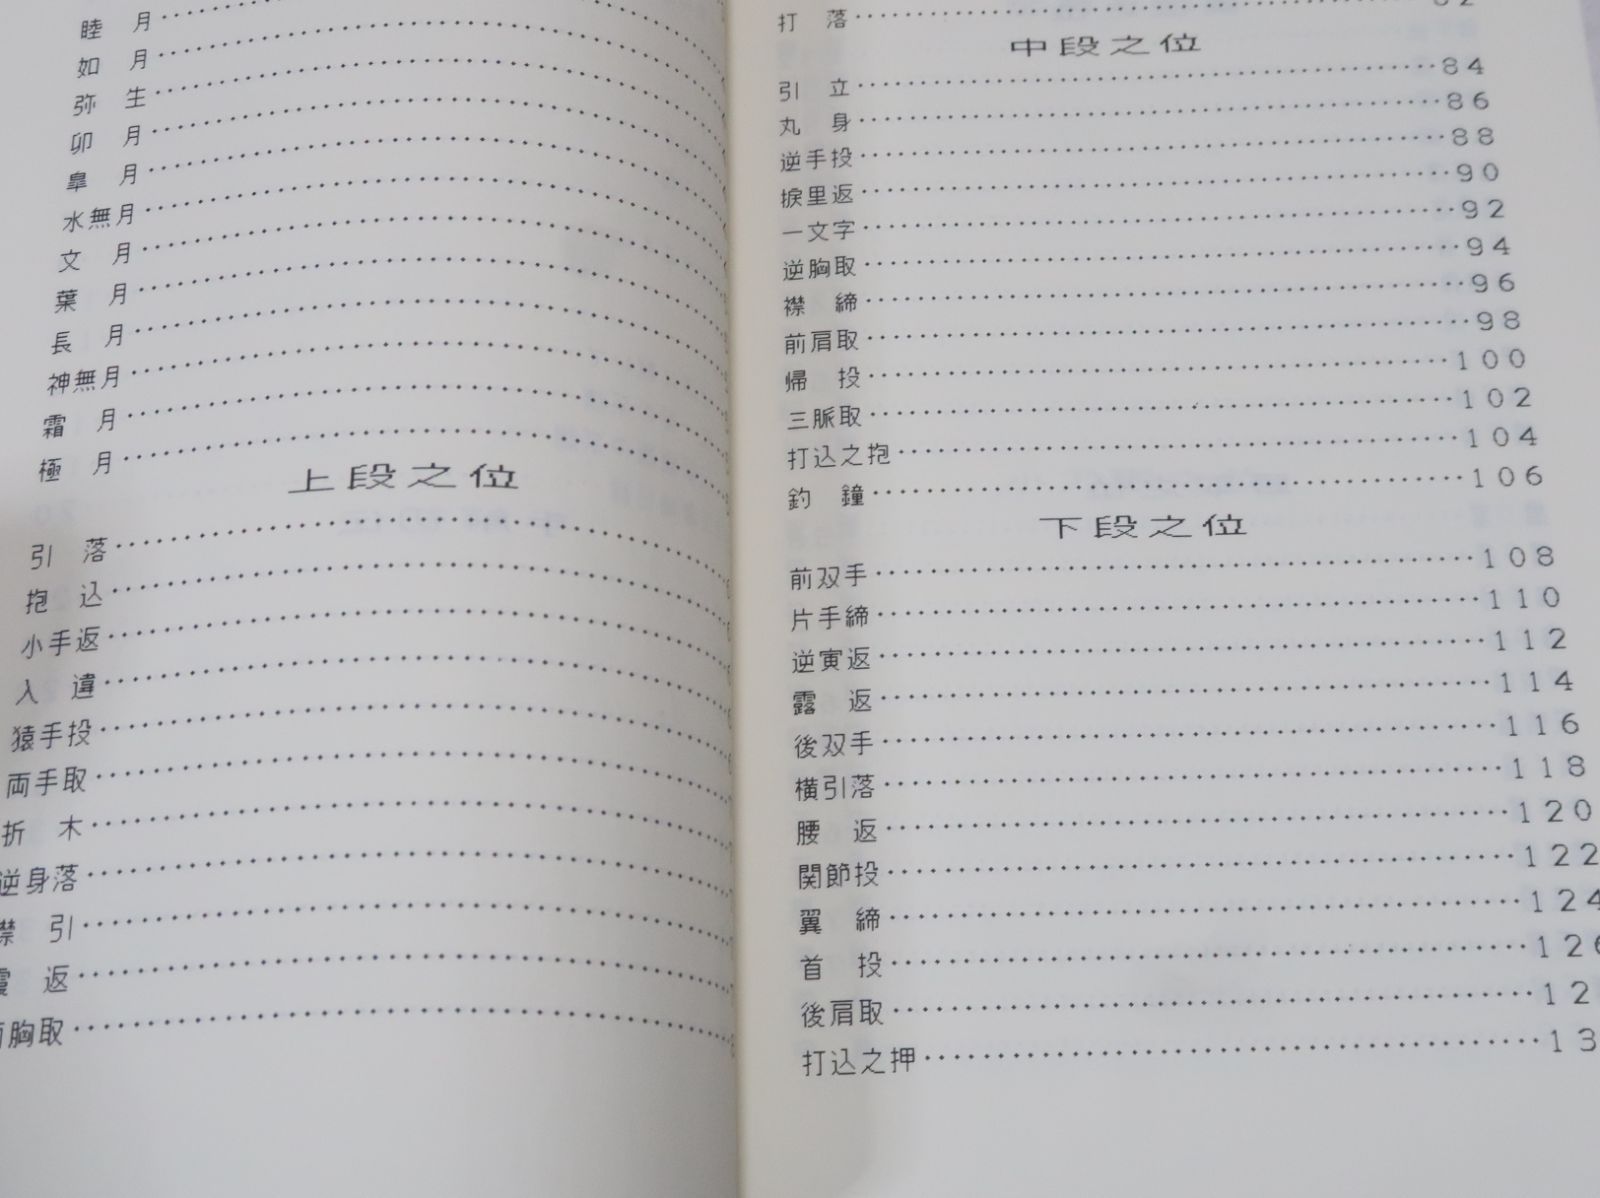 睦　月
如　月
弥　生
卯　月
皐　月
水無月
文　月
葉　月
長　月
神無月
霜　月
極　月
上段之位
引　落
抱　込
小手返
入　違
猿手投
両手取
折　木
逆身落
襟　引
返
胸取
打　落 82
中段之位
引　立 84
丸　身 86
逆手投 88
捩里返 90
一文字 92
逆胸取 94
襟　締 96
前肩取 98
帰　投 100
三脈取 102
打込之抱 104
釣　鐘 106
下段之位
前双手 108
片手締 110
逆寅返 112
露　返 114
後双手 116
横引落 118
腰　返 120
関節投 122
翼　締 124
首　投 126
後肩取 12
打込之押 13